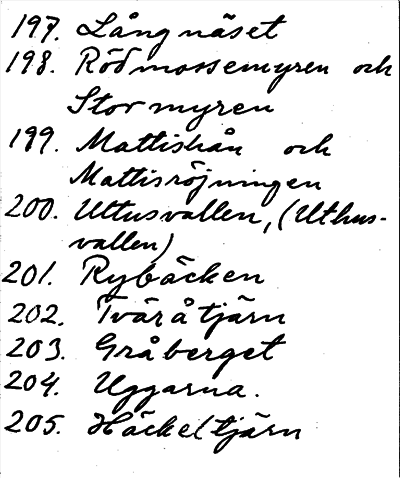 197. Långnäset
198. Rödmossemyren och
Stormyren
199. Mattiskån och
Mattisröjningen
200. Uttusvallen, (Uthus-
vallen)
201. Rybäcken
202. Tväråtjärn
203. Gråberget
204. Uggarna.
205. Häckeltjärn